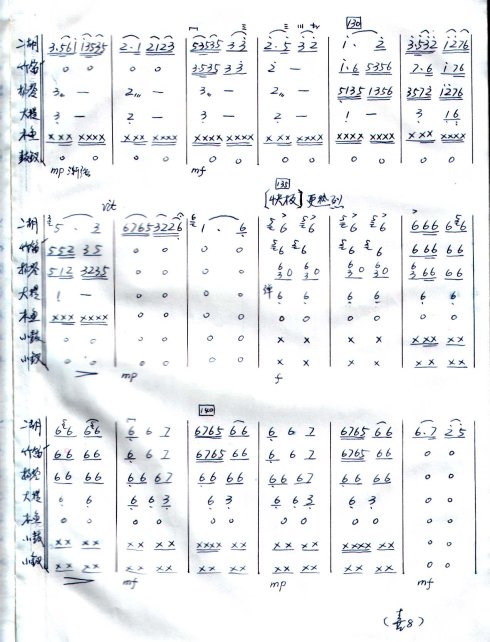 130
二胡 3.561 13535 | 2·1 2123 | 53535 3 3 | 2·5 3 2 | 1· 2 | 3.532 1276
竹笛 0 0 | 0 0 | 3.535 3 3 | 2 — | 1·6 5356 | 7·6 176
扬琴 3〃 — | 2〃 — | 3 — | 2〃 — | 5135 1356 | 3572 1276
大提 3 — | 2 — | 3 — | 2 — | 1 — | 3 16
木鱼 xxx xxxx | xxx xxxx | xxx xxxx | xxx xxxx | xxx xxxx | xxx xxxx
0 0 | 0 0 | 0 0 | 0 0 | 0 0 | 0 0
mp 渐强 mf
135
rit [快板]
二胡 5 · 3 | 6765 3226 | 1 · 6 | 6 6 | 6 6 | 666 66
竹笛 552 35 | 0 0 | 0 0 | 6 6 | 6 6 | 666 66
扬琴 512 3235 | 0 0 | 0 0 | 0 0 | 0 0 | 366 66
大提 1 — | 0 0 | 0 0 | 弹 6 6 | 6 6 | 6 6
木鱼 xxx xxxx | 0 0 | 0 0 | 0 0 | 0 0 | 0 0
小鼓 0 0 | 0 0 | 0 0 | x x | x x | xxx xx
小钗 0 0 | 0 0 | 0 0 | x x | x x | xx xx
> mp f
140
二胡 66 66 | 6 6 7 | 6765 66 | 6 6 7 | 6765 66 | 6·7 25
竹笛 66 66 | 6 6 7 | 6765 66 | 6 6 7 | 6765 66 | 0 0
扬琴 66 66 | 66 67 | 66 66 | 66 67 | 66 66 | 0 0
大提 6 6 | 6 63 | 6 3 | 6 63 | 6 3 | 0 0
木鱼 0 0 | 0 0 | 0 0 | 0 0 | 0 0 | 0 0
小鼓 xx xx | xx xx | xxxx xx | xx xx | xxxx xx | 0 0
小钗 xx xx | xx xx | xx xx | xx xx | xx xx | 0 0
> mf mp mf
(喜8)